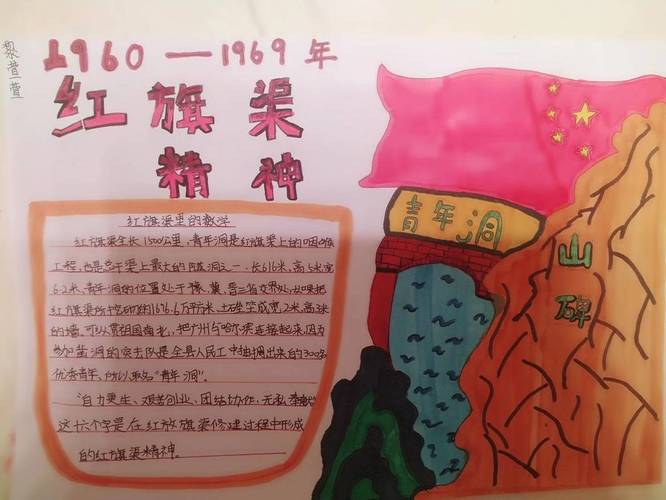 黎萱萱
1960—1969年
红旗渠
精神
红旗渠里的数学
红旗渠全长1500公里,青年洞是红旗渠上的咽喉
工程,也是总干渠上最大的隧洞之一,长616米,高5米宽
6.2米,青年洞的位置处于豫、冀、晋三省交界处,如果把
红旗渠所挖的1676.6万平方米土垒成宽2米,高3米
的墙,可以贯祖国南北,把广州与哈尔滨连接起来,因为
参加凿洞的突击队是全县人民工中抽调出来的300名
优秀青年,所以取名"青年洞"。
"自力更生、艰苦创业、团结协作、无私奉献"
这十六个字是在红旗渠修建过程中形成
的红旗渠精神。
青年洞
山
碑